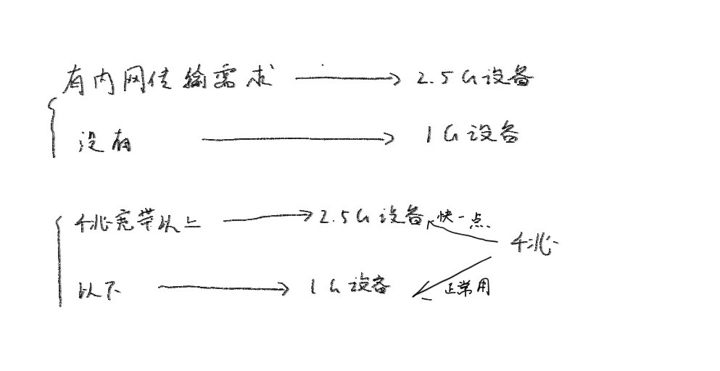 有内网传输需求 → 2.5G设备
没有 → 1G设备
千兆宽带以上 → 2.5G设备 快一点
千兆
以下 → 1G设备 正常用